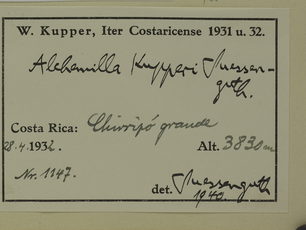 W. Kupper, Iter Costaricense 1931 u. 32.
Alchemilla Kupperi Suessen-
guth.
Costa Rica: Chirripó grande
28.4.1932. Alt. 3830m
Nr. 1147.
det. Suessenguth
1940.